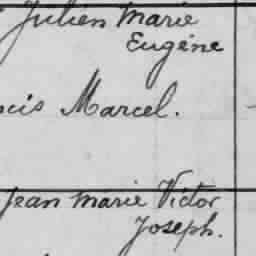 Julien Marie
Eugène
Marcel.
Jean Marie Victor
Joseph.